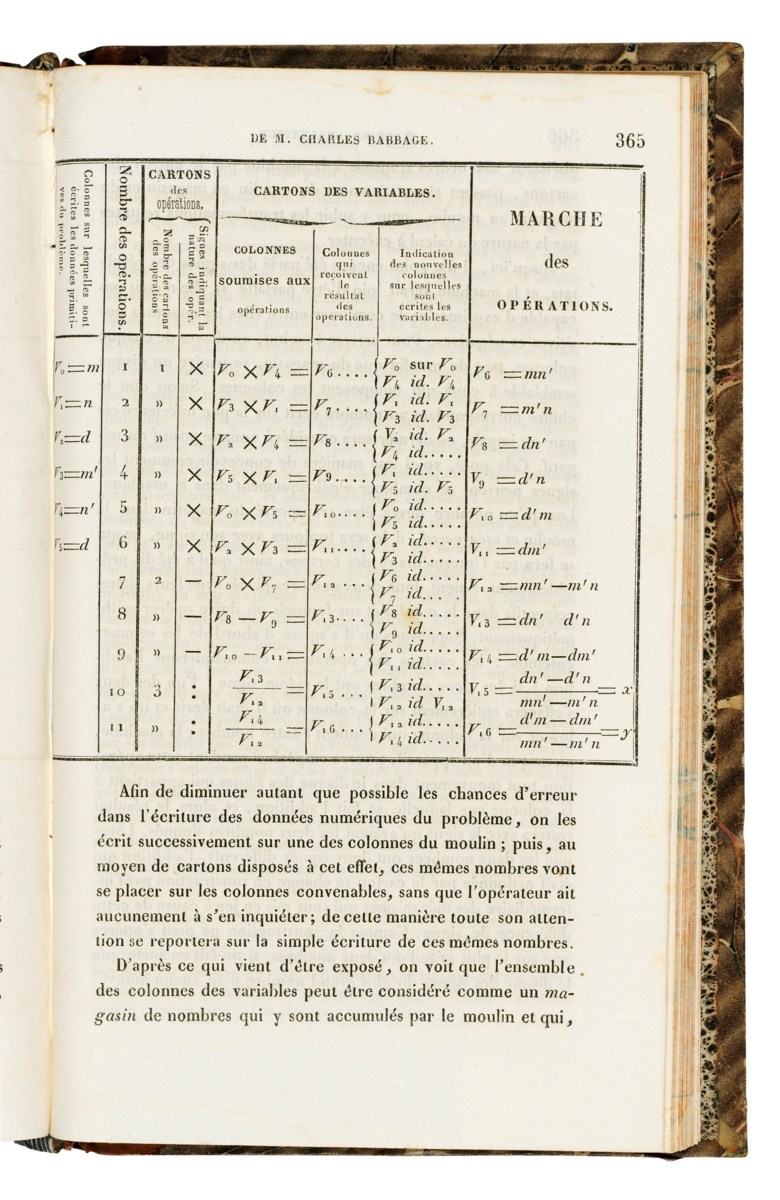 DE M. CHARLES BABBAGE. 365
Colonnes sur lesquelles sont
écrites les données primiti-
ves du problème.
Nombre des opérations.
CARTONS
des
opérations.
Nombre des cartons
des opérations
Signes indiquant la
nature des opér.
CARTONS DES VARIABLES.
COLONNES
soumises aux
opérations
Colonnes
qui
reçoivent
le
résultat
des
operations.
Indication
des nouvelles
colonnes
sur lesquelles
sont
écrites les
variables.
MARCHE
des
OPÉRATIONS.
V₀=m 1 1 × V₀ × V₄ = V₆.... { V₀ sur V₀ V₆ =mn'
V₄ id. V₄
V₁=n 2 » × V₃ × V₁ = V₇.... { V₁ id. V₁ V₇ =m'n
V₃ id. V₃
V₂=d 3 » × V₂ × V₄ = V₈.... { V₂ id. V₂ V₈ =dn'
V₄ id.....
V₃=m' 4 » × V₅ × V₁ = V₉.... { V₁ id..... V₉ =d'n
V₅ id. V₅
V₄=n' 5 » × V₀ × V₅ = V₁₀.... { V₀ id..... V₁₀ =d'm
V₅ id.....
V₅=d 6 » × V₂ × V₃ = V₁₁.... { V₂ id..... V₁₁ =dm'
V₃ id.....
7 2 — V₀ × V₇ = V₁₂ ... { V₆ id..... V₁₂ =mn'—m'n
V₇ id... .
8 » — V₈ — V₉ = V₁₃.... { V₈ id..... V₁₃ =dn' d'n
V₉ id.....
9 » — V₁₀ — V₁₁ = V₁₄ ... { V₁₀ id..... V₁₄ =d'm—dm'
V₁₁ id.....
10 3 : V₁₃ / V₁₂ = V₁₅ ... { V₁₃ id..... V₁₅ = dn'—d'n / mn'—m'n = x
V₁₂ id V₁₂
11 » : V₁₄ / V₁₂ = V₁₆ ... { V₁₂ id..... V₁₆ = d'm—dm' / mn'—m'n =y
V₁₄ id.....
Afin de diminuer autant que possible les chances d'erreur
dans l'écriture des données numériques du problème, on les
écrit successivement sur une des colonnes du moulin ; puis, au
moyen de cartons disposés à cet effet, ces mêmes nombres vont
se placer sur les colonnes convenables, sans que l'opérateur ait
aucunement à s'en inquiéter ; de cette manière toute son atten-
tion se reportera sur la simple écriture de ces mêmes nombres.
D'après ce qui vient d'être exposé, on voit que l'ensemble
des colonnes des variables peut être considéré comme un ma-
gasin de nombres qui y sont accumulés par le moulin et qui,